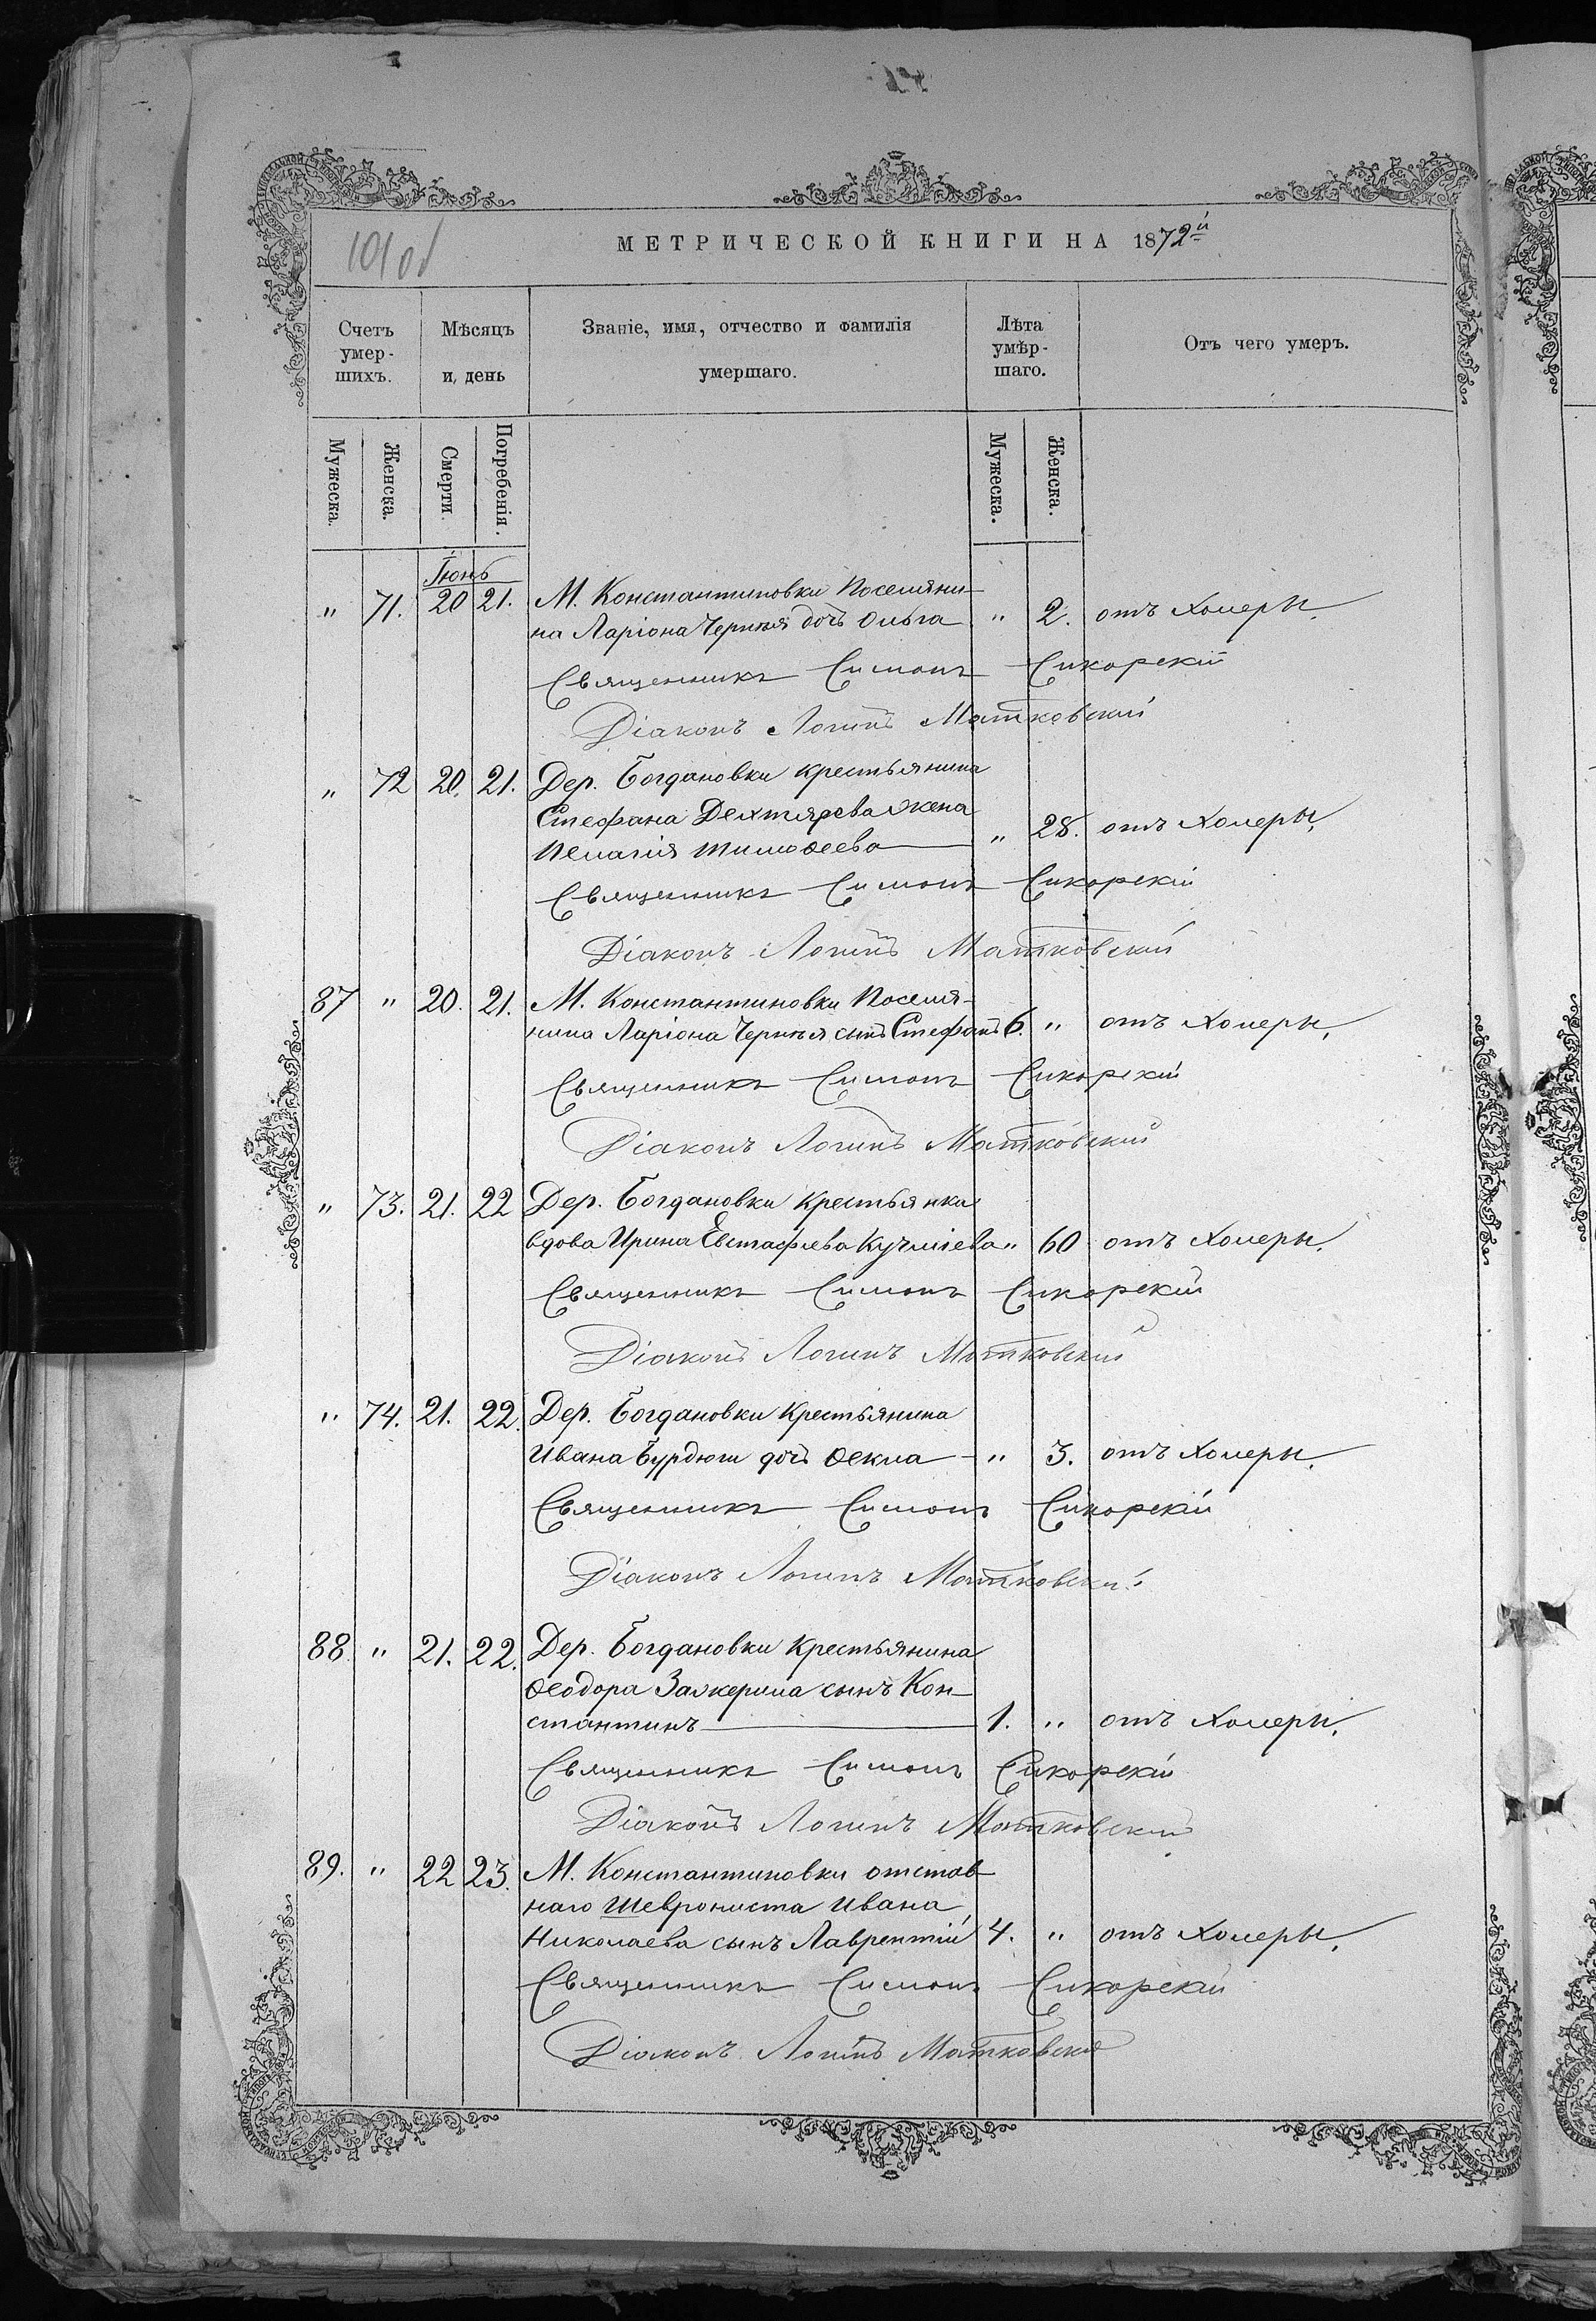 101 об
МЕТРИЧЕСКОЙ КНИГИ НА 1872й
Счетъ умер-шихъ.
Мѣсяцъ и, день
Званіе, имя, отчество и фамилія умершаго.
Лѣта умѣр-шаго.
Отъ чего умеръ.
Мужеска. Женска. Смерти. Погребенія. Мужеска. Женска.
Іюнь
" 71. 20 21. М. Константиновки Поселяни-
на Ларіона Черныя дочь Ольга " 2. отъ Холеры.
Священникъ Симонъ Сикорскій
Діаконъ Логинъ Матковскій
" 72 20. 21. Дер. Богдановки крестьянина
Стефана Дехтярева жена
Пелагія Тимоѳеева " 28. отъ Холеры.
Священникъ Симонъ Сикорскій
Діаконъ Логинъ Матковскій
87 " 20. 21. М. Константиновки Поселя-
нина Ларіона Черныя сынъ Стефанъ 6. " отъ Холеры.
Священникъ Симонъ Сикорскій
Діаконъ Логинъ Матковскій
" 73. 21. 22 Дер. Богдановки крестьянка
вдова Ирина Евстафіева Кучміева " 60 отъ Холеры.
Священникъ Симонъ Сикорскій
Діаконъ Логинъ Матковскій
" 74. 21. 22. Дер. Богдановки Крестьянина
Ивана Бурдюги дочь Ѳекла - " 3. отъ Холеры.
Священникъ Симонъ Сикорскій
Діаконъ Логинъ Матковскій
88. " 21. 22. Дер. Богдановки Крестьянина
Ѳеодора сынъ Кон-
стантинъ 1. " отъ Холеры.
Священникъ Симонъ Сикорскій
Діаконъ Логинъ Матковскій
89. " 22 23. М. Константиновки отстав
наго Шеврониста Ивана
Николаева сынъ Лаврентій 4. " отъ Холеры.
Священникъ Симонъ Сикорскій
Діаконъ Логинъ Матковскій